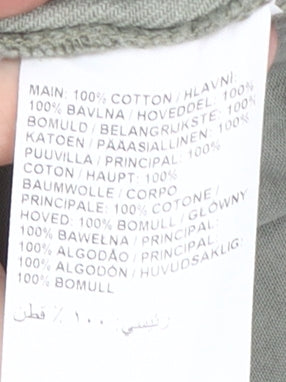 MAIN: 100% COTTON / HLAVNÍ:
100% BAVLNA / HOVEDDEL: 100%
BOMULD / BELANGRIJKSTE: 100%
KATOEN / PÄÄASIALLINEN: 100%
PUUVILLA / PRINCIPAL: 100%
COTON / HAUPT: 100%
BAUMWOLLE / CORPO
PRINCIPALE: 100% COTONE /
HOVED: 100% BOMULL / GŁÓWNY
100% BAWEŁNA / PRINCIPAL:
100% ALGODÃO / PRINCIPAL:
100% ALGODÓN / HUVUDSAKLIG:
100% BOMULL
رئيسي: ١٠٠ ٪ قطن